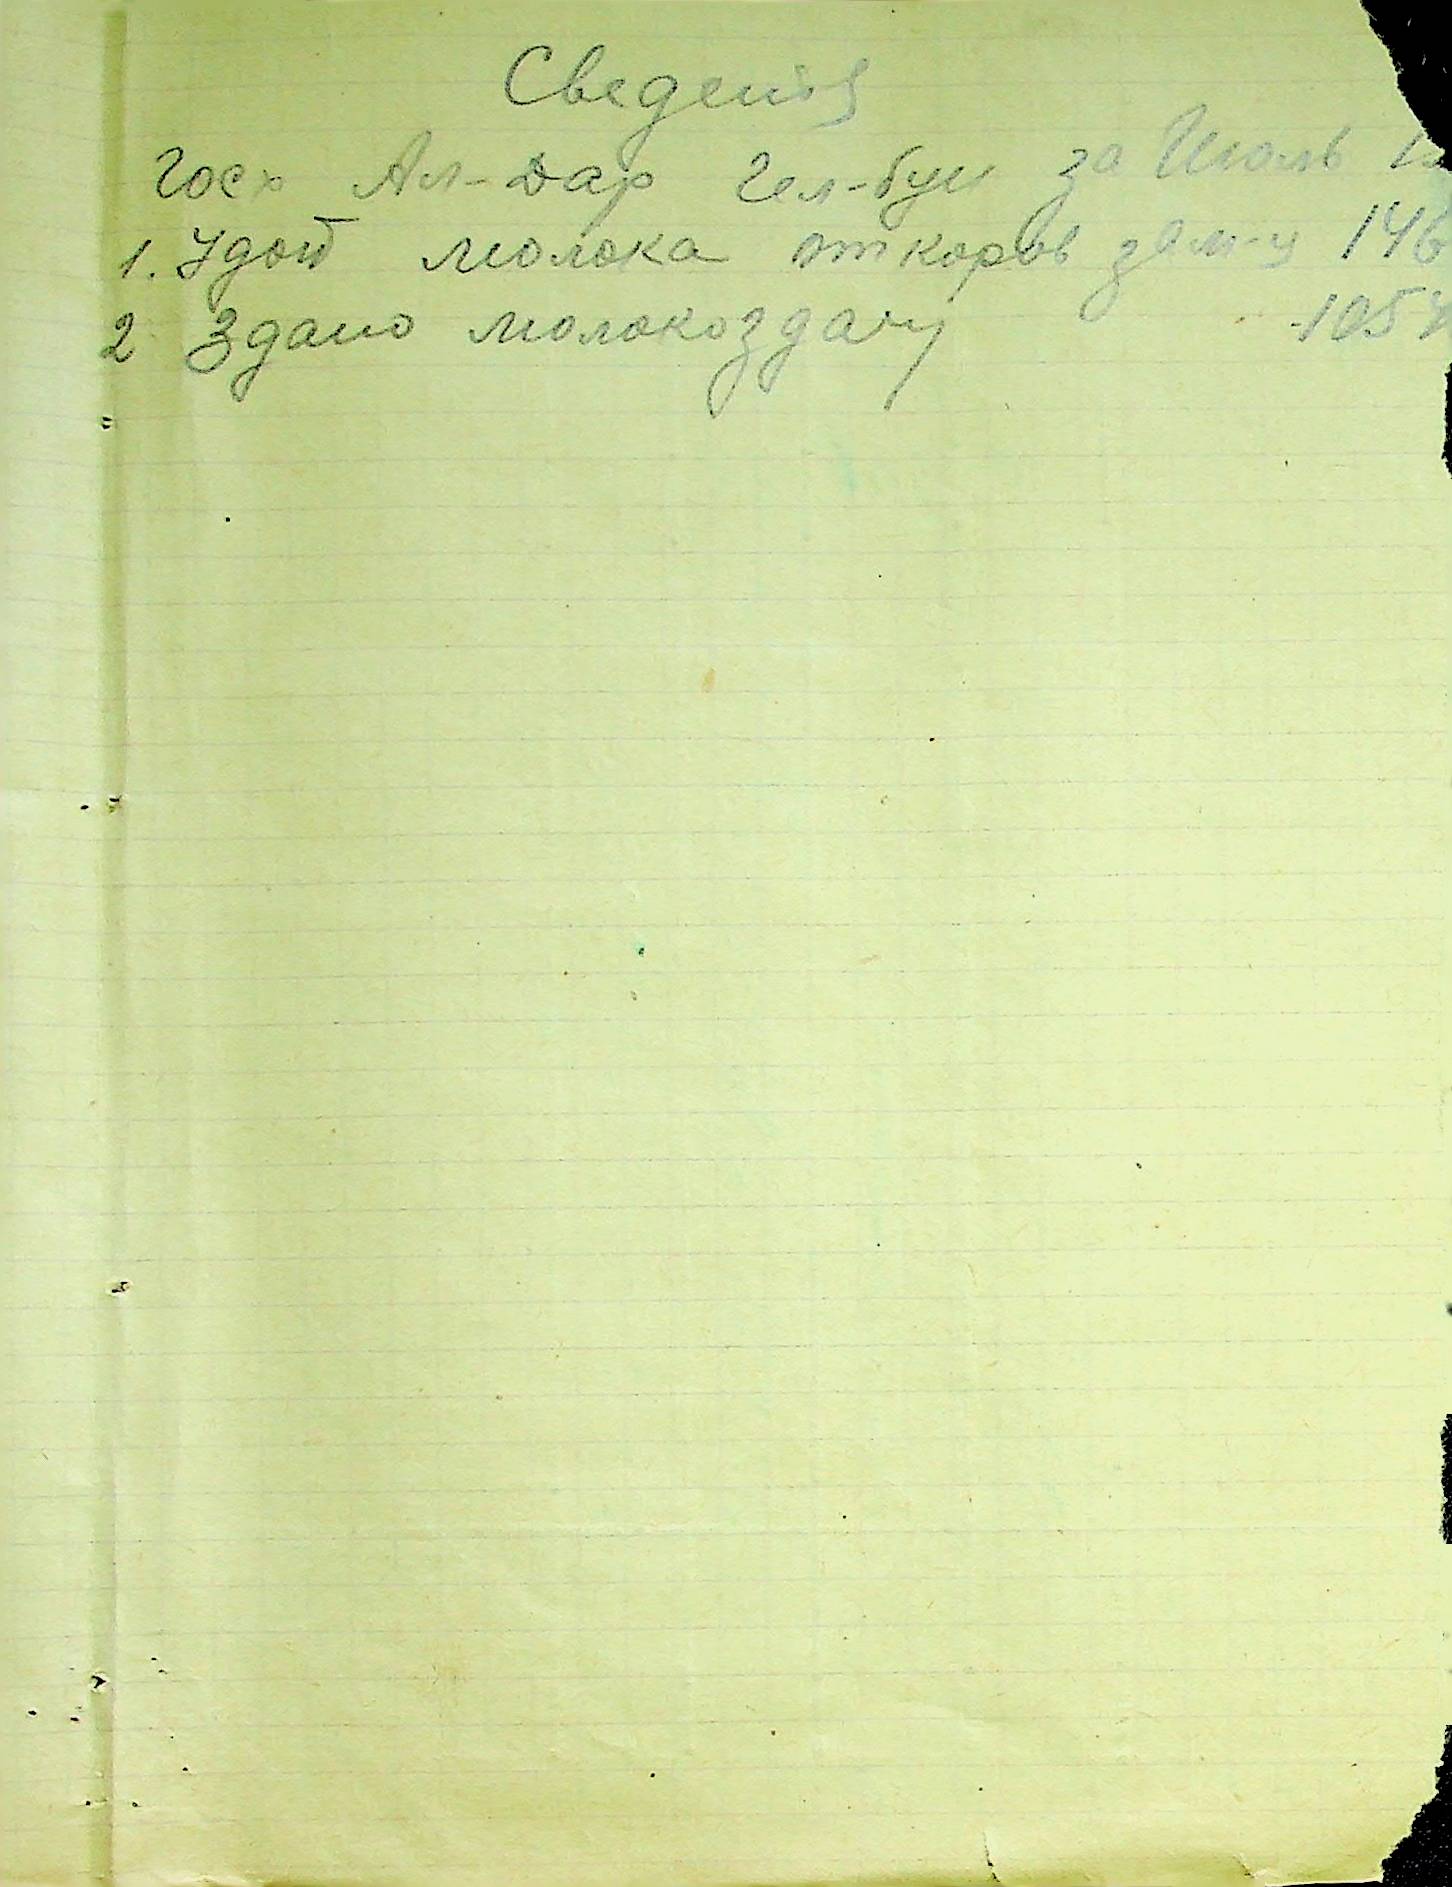 Сведения
Госх Ал-Дар Гел-буи за Июль 1
1. Удой молока от коров зам-ч 146
2 Здано молокоздачу 1054